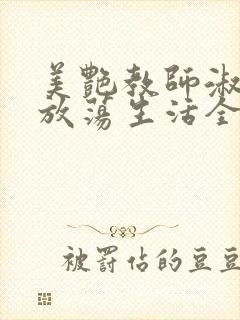 美艷教師淑
放蕩生活全
被罰站的豆豆